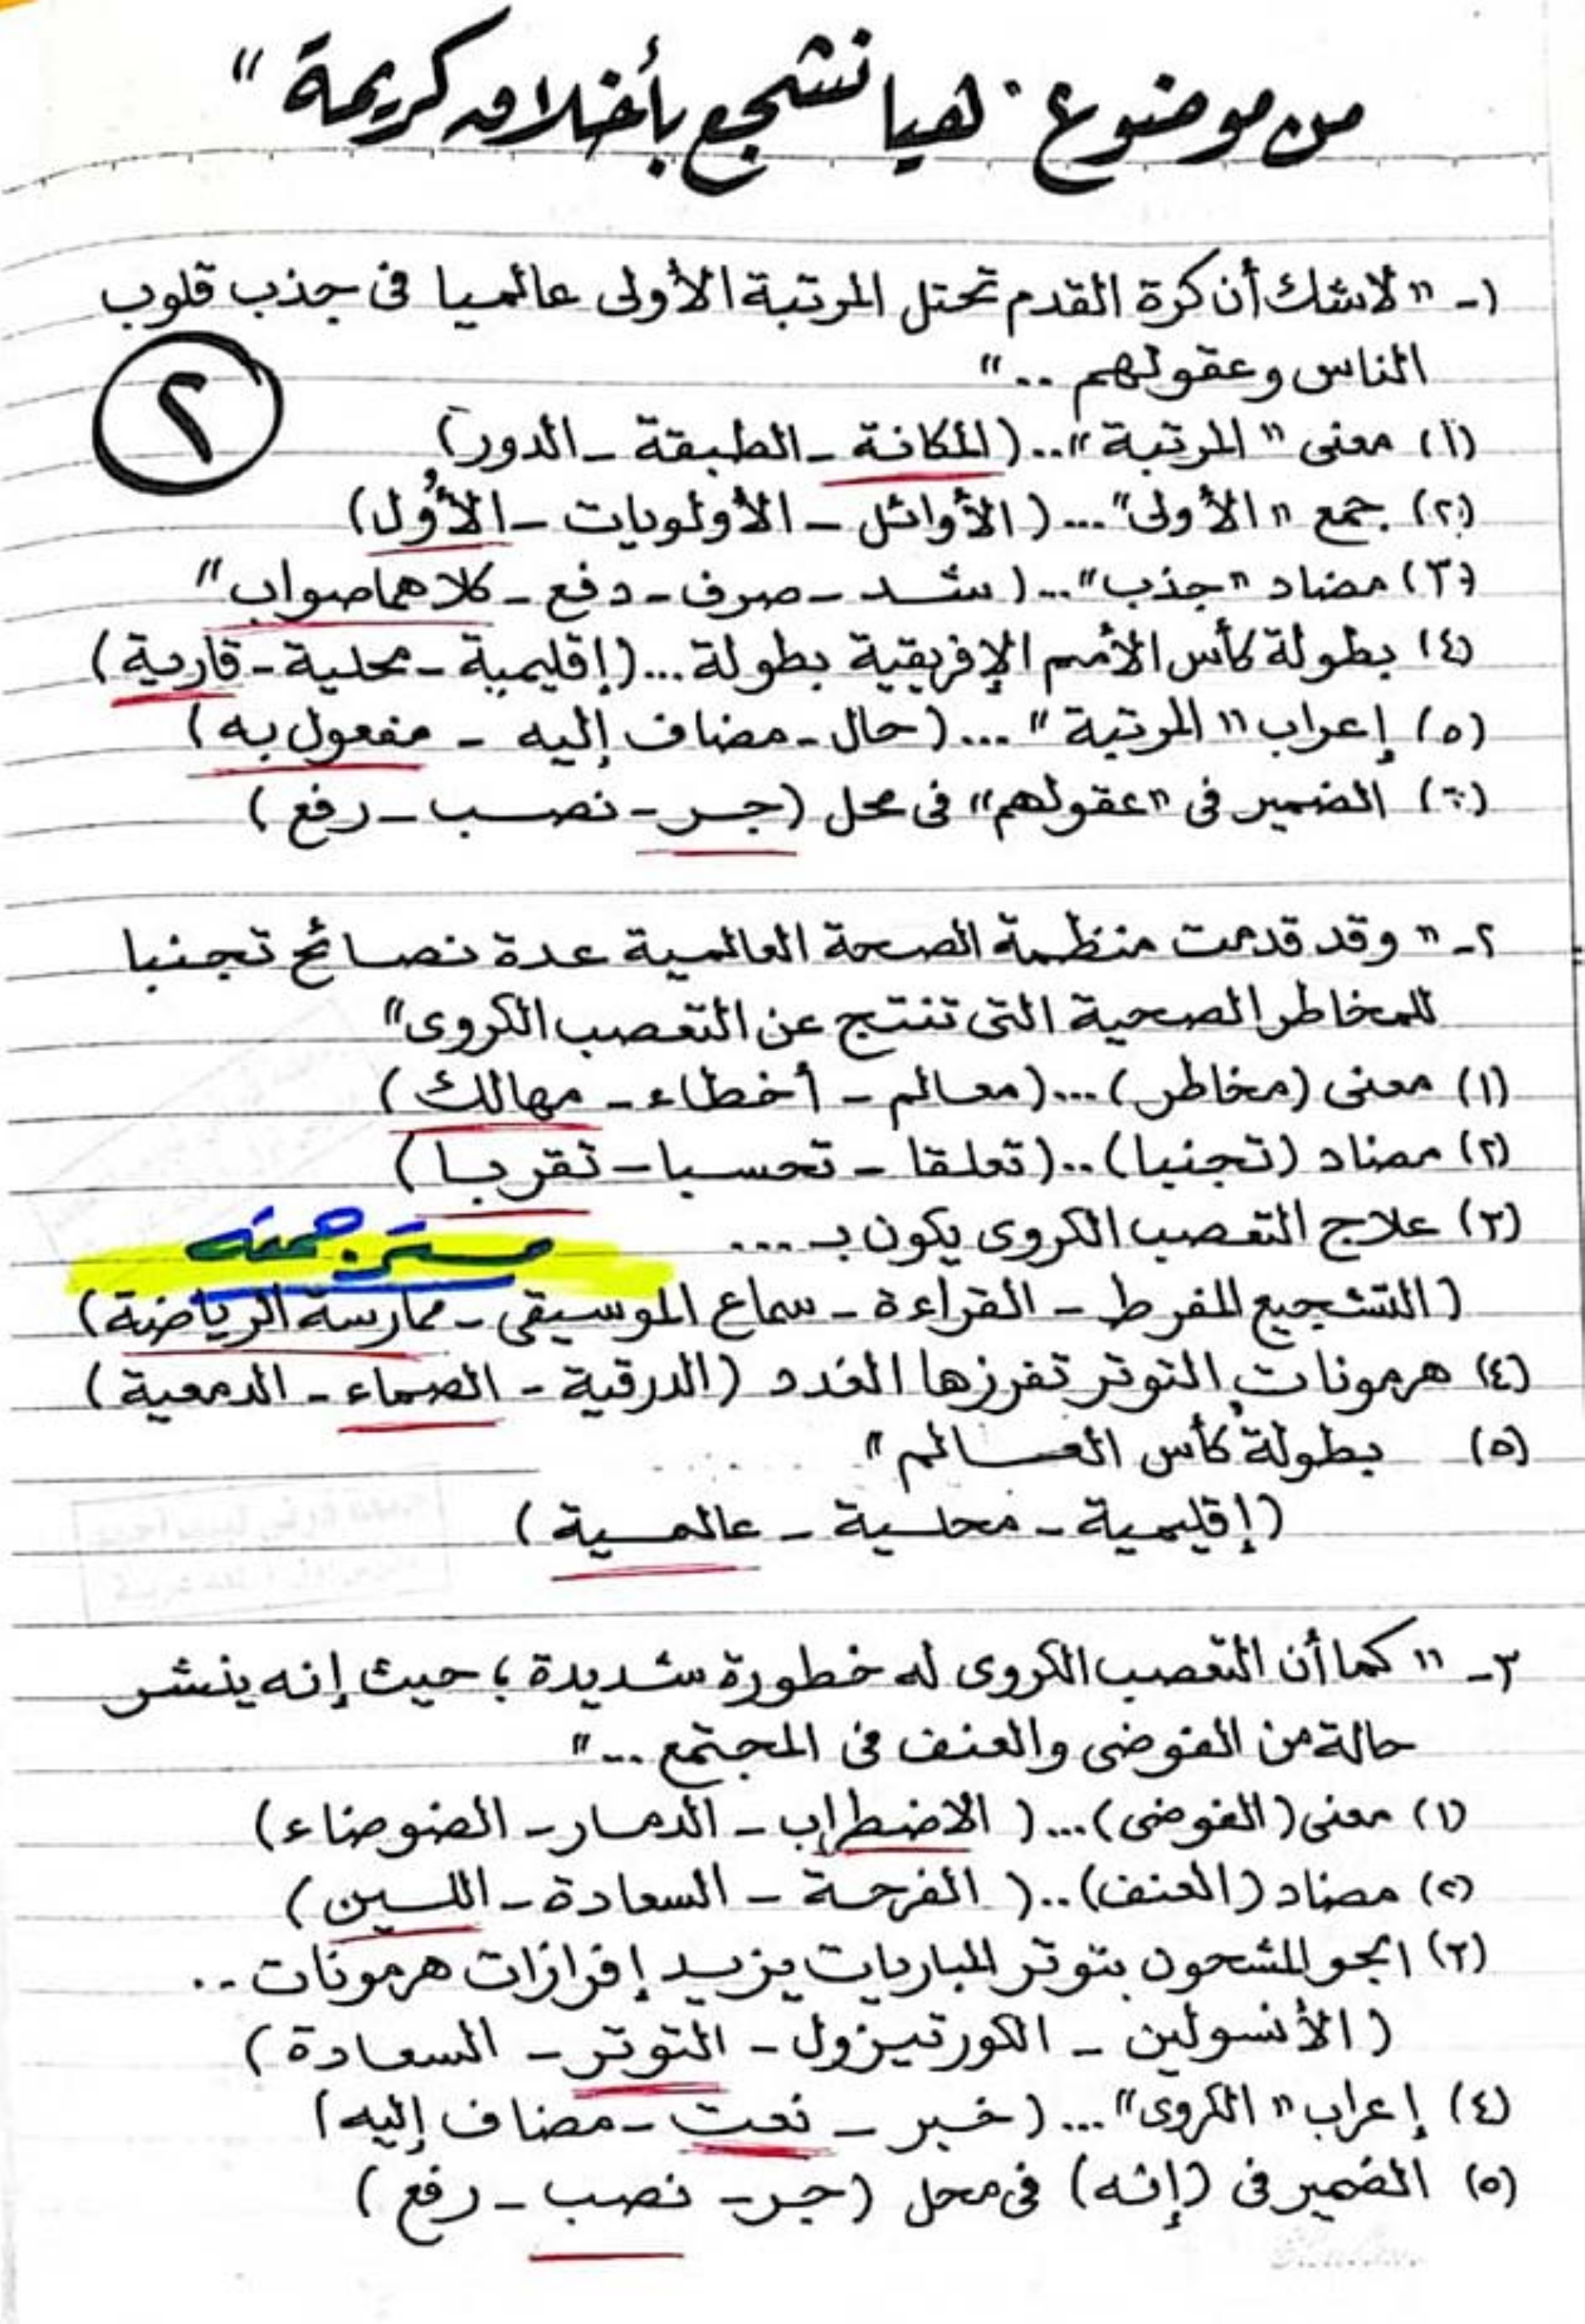 من موضوع " هيا نشجع بأخلاق كريمة "
١- " لاشك أن كرة القدم تحتل المرتبة الأولى عالميا فى جذب قلوب
الناس وعقولهم .. "
٢
(١) معنى " المرتبة " .. ( المكانة - الطبقة - الدور )
(٢) جمع " الأولى " ... ( الأوائل - الأولويات - الأُوَل )
(٣) مضاد " جذب " ... ( شد - صرف - دفع - كلاهما صواب "
(٤) بطولة كأس الأمم الإفريقية بطولة ... ( إقليمية - محلية - قارية )
(٥) إعراب " المرتبة " ... ( حال - مضاف إليه - مفعول به )
(٦) الضمير فى " عقولهم " فى محل ( جر - نصب - رفع )
٢- " وقد قدمت منظمة الصحة العالمية عدة نصائح تجنبا
للمخاطر الصحية التى تنتج عن التعصب الكروى "
(١) معنى ( مخاطر ) ... ( معالم - أخطاء - مهالك )
(٢) مضاد ( تجنبا ) .. ( تعلقا - تحسبا - تقربا )
(٣) علاج التعصب الكروى يكون بـ ...
مستر جمعه
( التشجيع المفرط - القراءة - سماع الموسيقى - ممارسة الرياضة )
(٤) هرمونات التوتر تفرزها الغدد ( الدرقية - الصماء - الدمعية )
(٥) بطولة كأس العالم "
( إقليمية - محلية - عالمية )
٣- " كما أن التعصب الكروى له خطورة شديدة ؛ حيث إنه ينشر
حالة من الفوضى والعنف فى المجتمع ... "
(١) معنى ( الفوضى ) ... ( الاضطراب - الدمار - الضوضاء )
(٢) مضاد ( العنف ) .. ( الفرحة - السعادة - اللين )
(٣) الجو المشحون بتوتر المباريات يزيد إفرازات هرمونات ..
( الأنسولين - الكورتيزول - التوتر - السعادة )
(٤) إعراب " الكروى " ... ( خبر - نعت - مضاف إليه )
(٥) الضمير فى ( إنه ) فى محل ( جر - نصب - رفع )